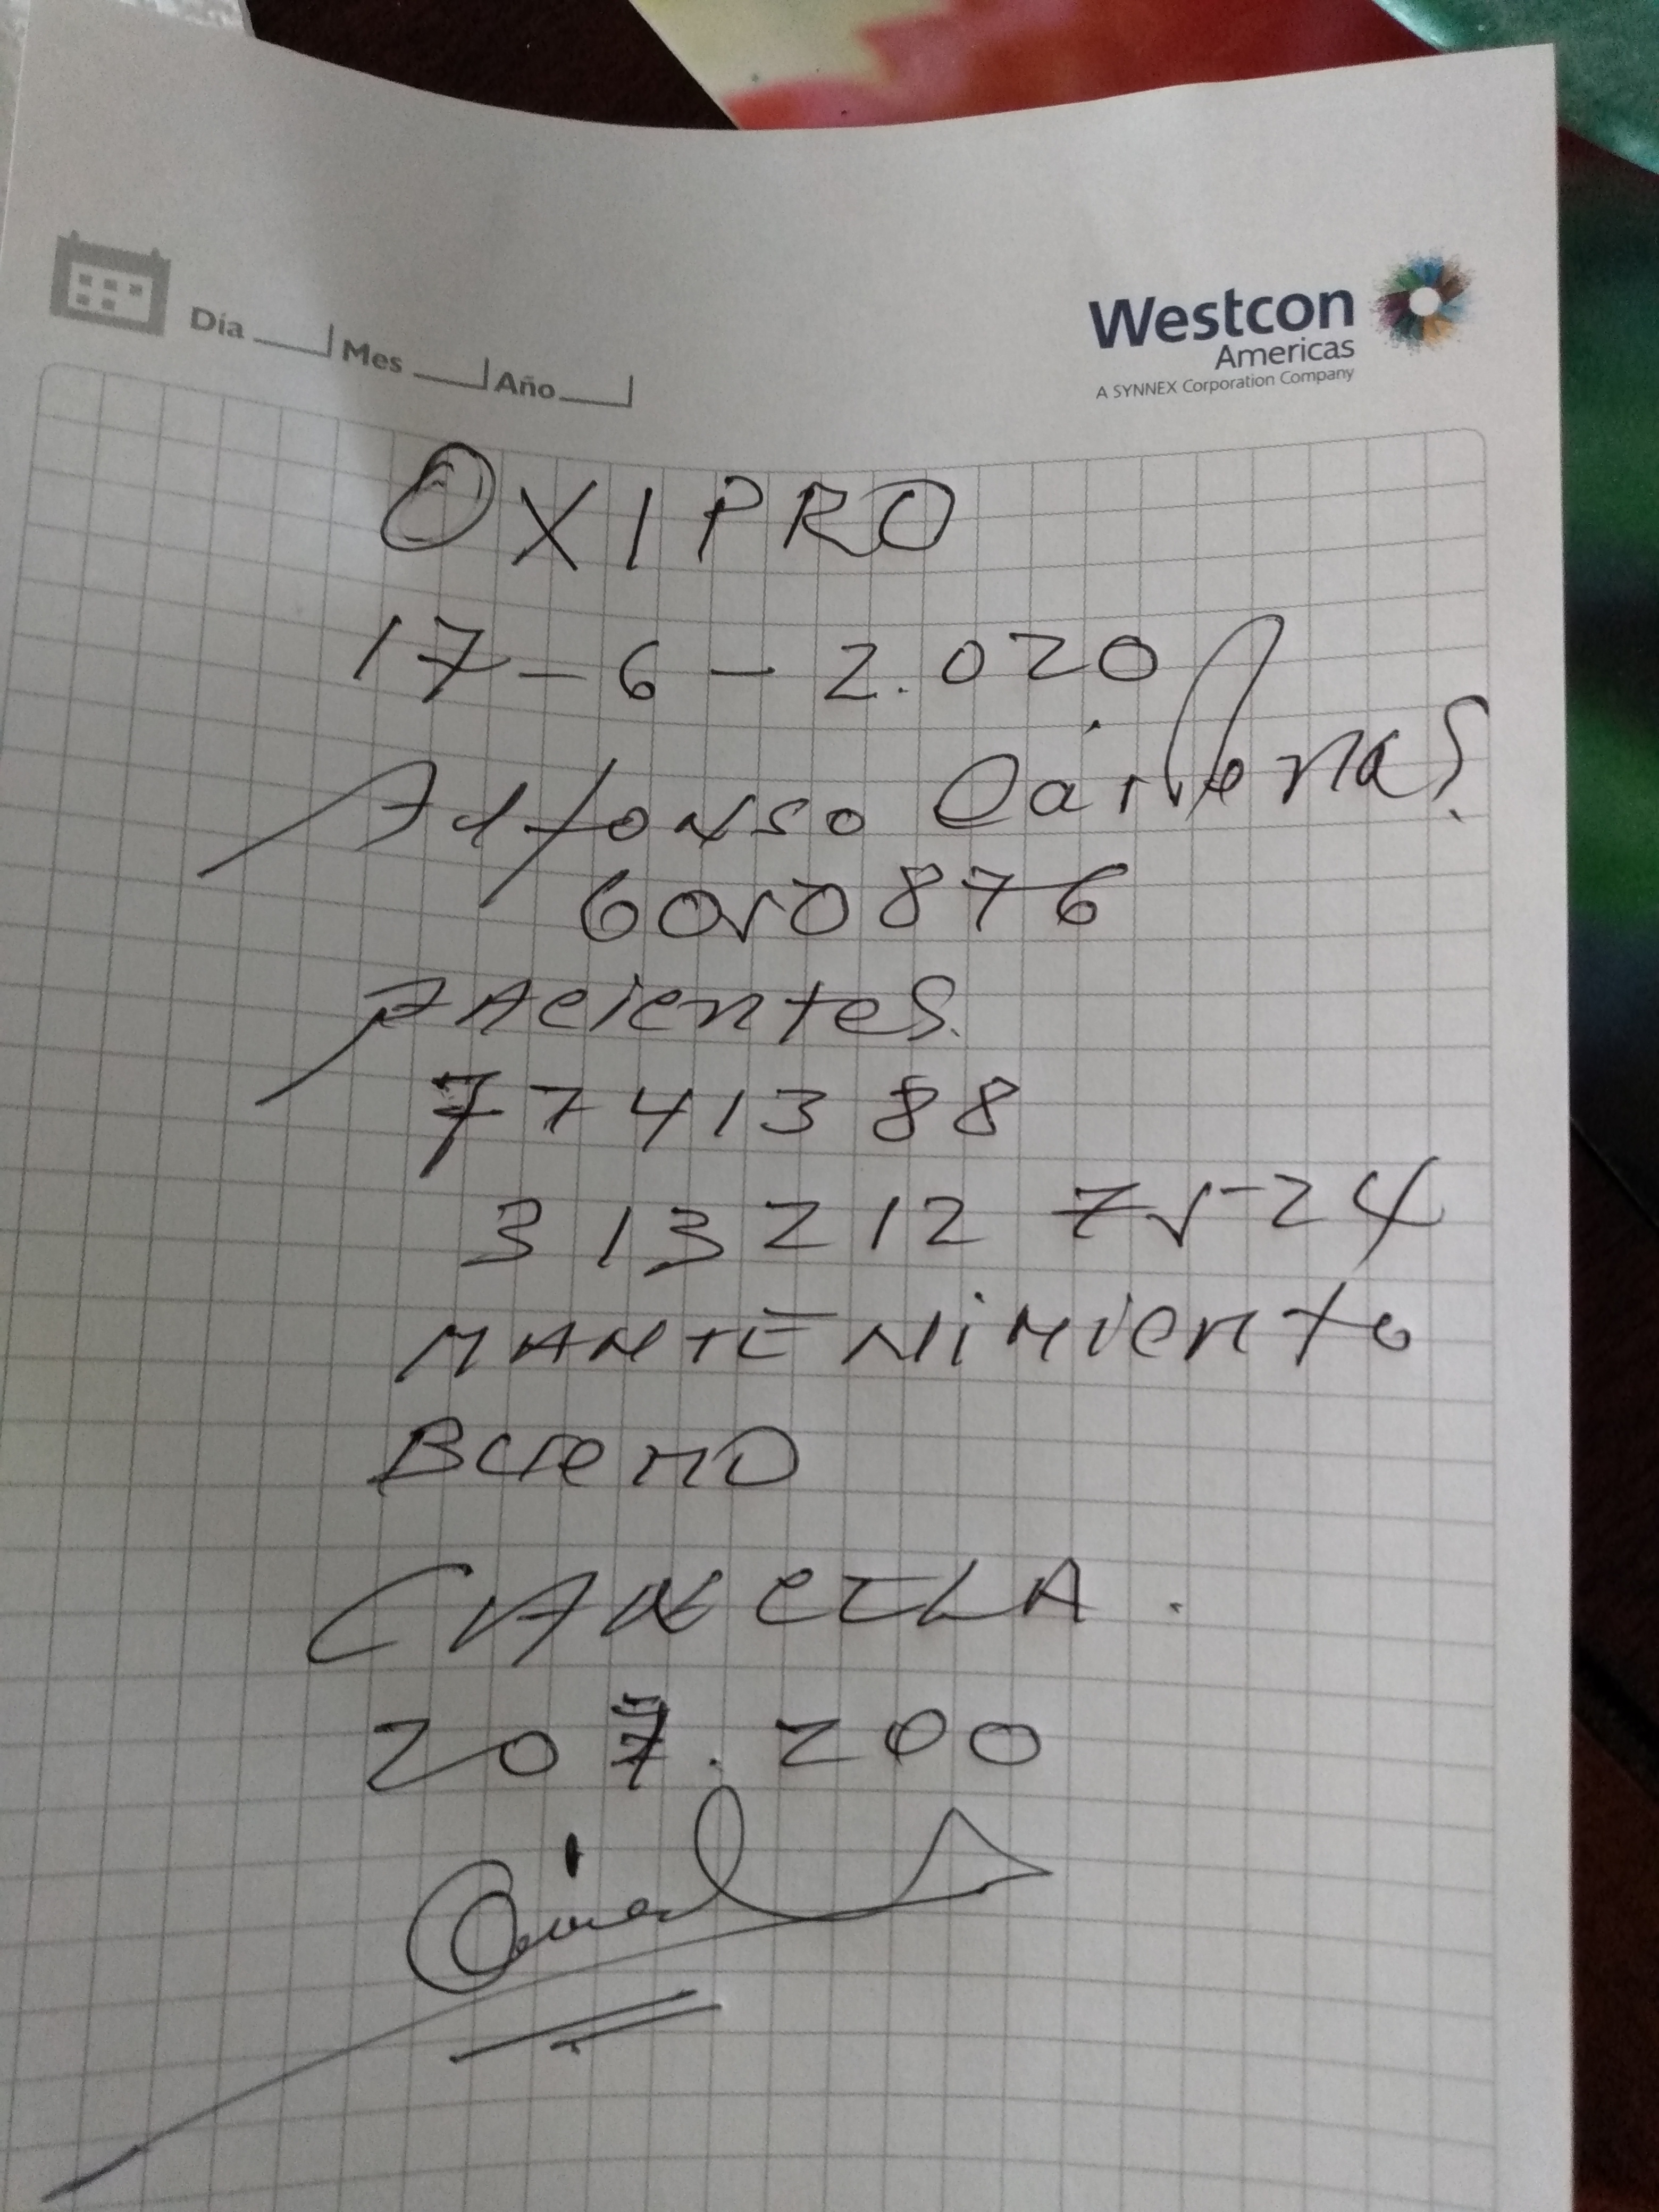 Día ___ Mes ___ Año ___
Westcon
Americas
A SYNNEX Corporation Company
OXIPRO
17-6-2.020
Alfonso Cárdenas
6050876
PAcientes.
7741388
313212 7524
MANTENIMiento
BueNO
CANCELA.
207.200